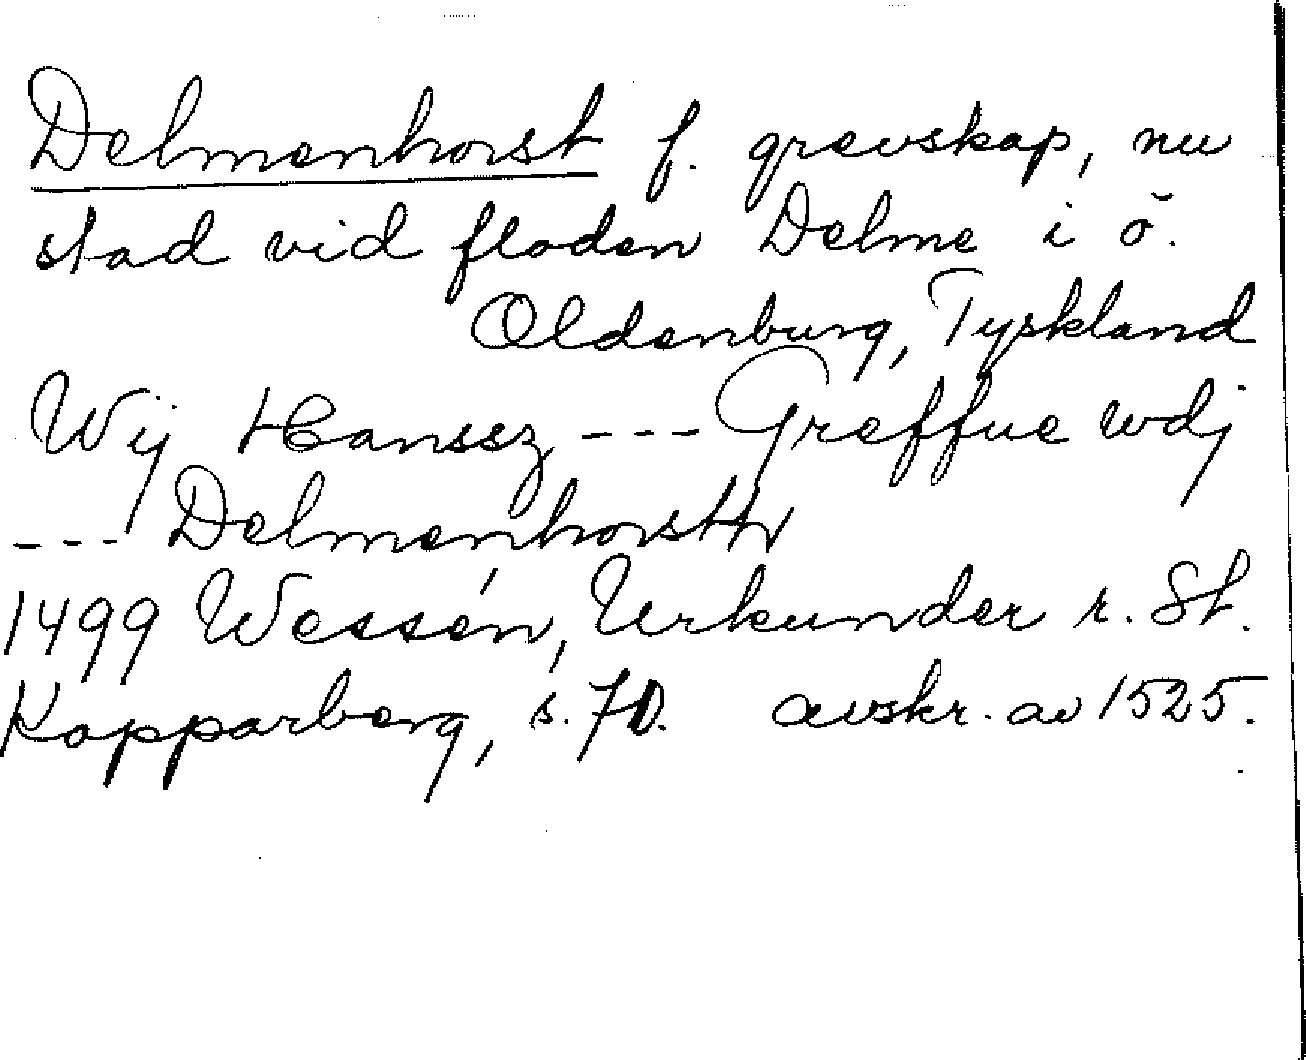 Delmenhorst f. grevskap, nu
stad vid floden Delme i ö.
Oldenburg, Tyskland
Wij Hanssz --- Greffue wdj
--- Delmenhorstt
1499 Wessén, Urkunder r. St.
Kopparberg, s. 70. avskr. av 1525.